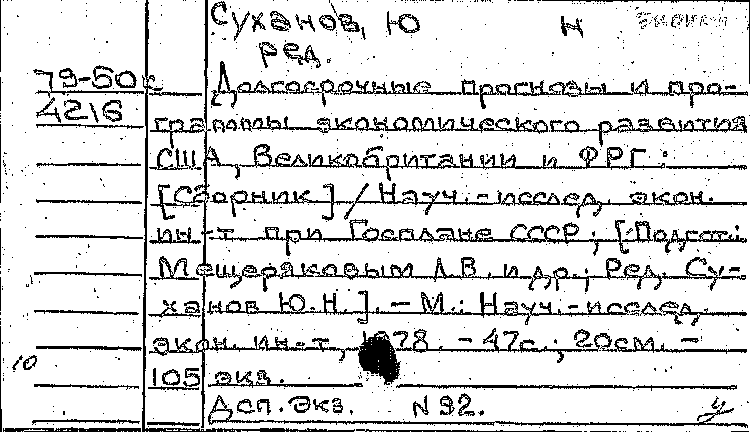 Суханов, Ю Н
ред.
79-50
4216
Долгосрочные прогнозы и про-
граммы экономического развития
США, Великобритании и ФРГ:
[Сборник] / Науч.-исслед. экон.
ин-т при Госплане СССР; [Подгот.:
Мещеряковым Л.В. и др.; Ред. Су-
ханов Ю.Н.]. - М.: Науч.-исслед.
экон. ин-т, 1978. - 47с.; 20см. -
10
105 экз.
Дсп. Экз. N 92.